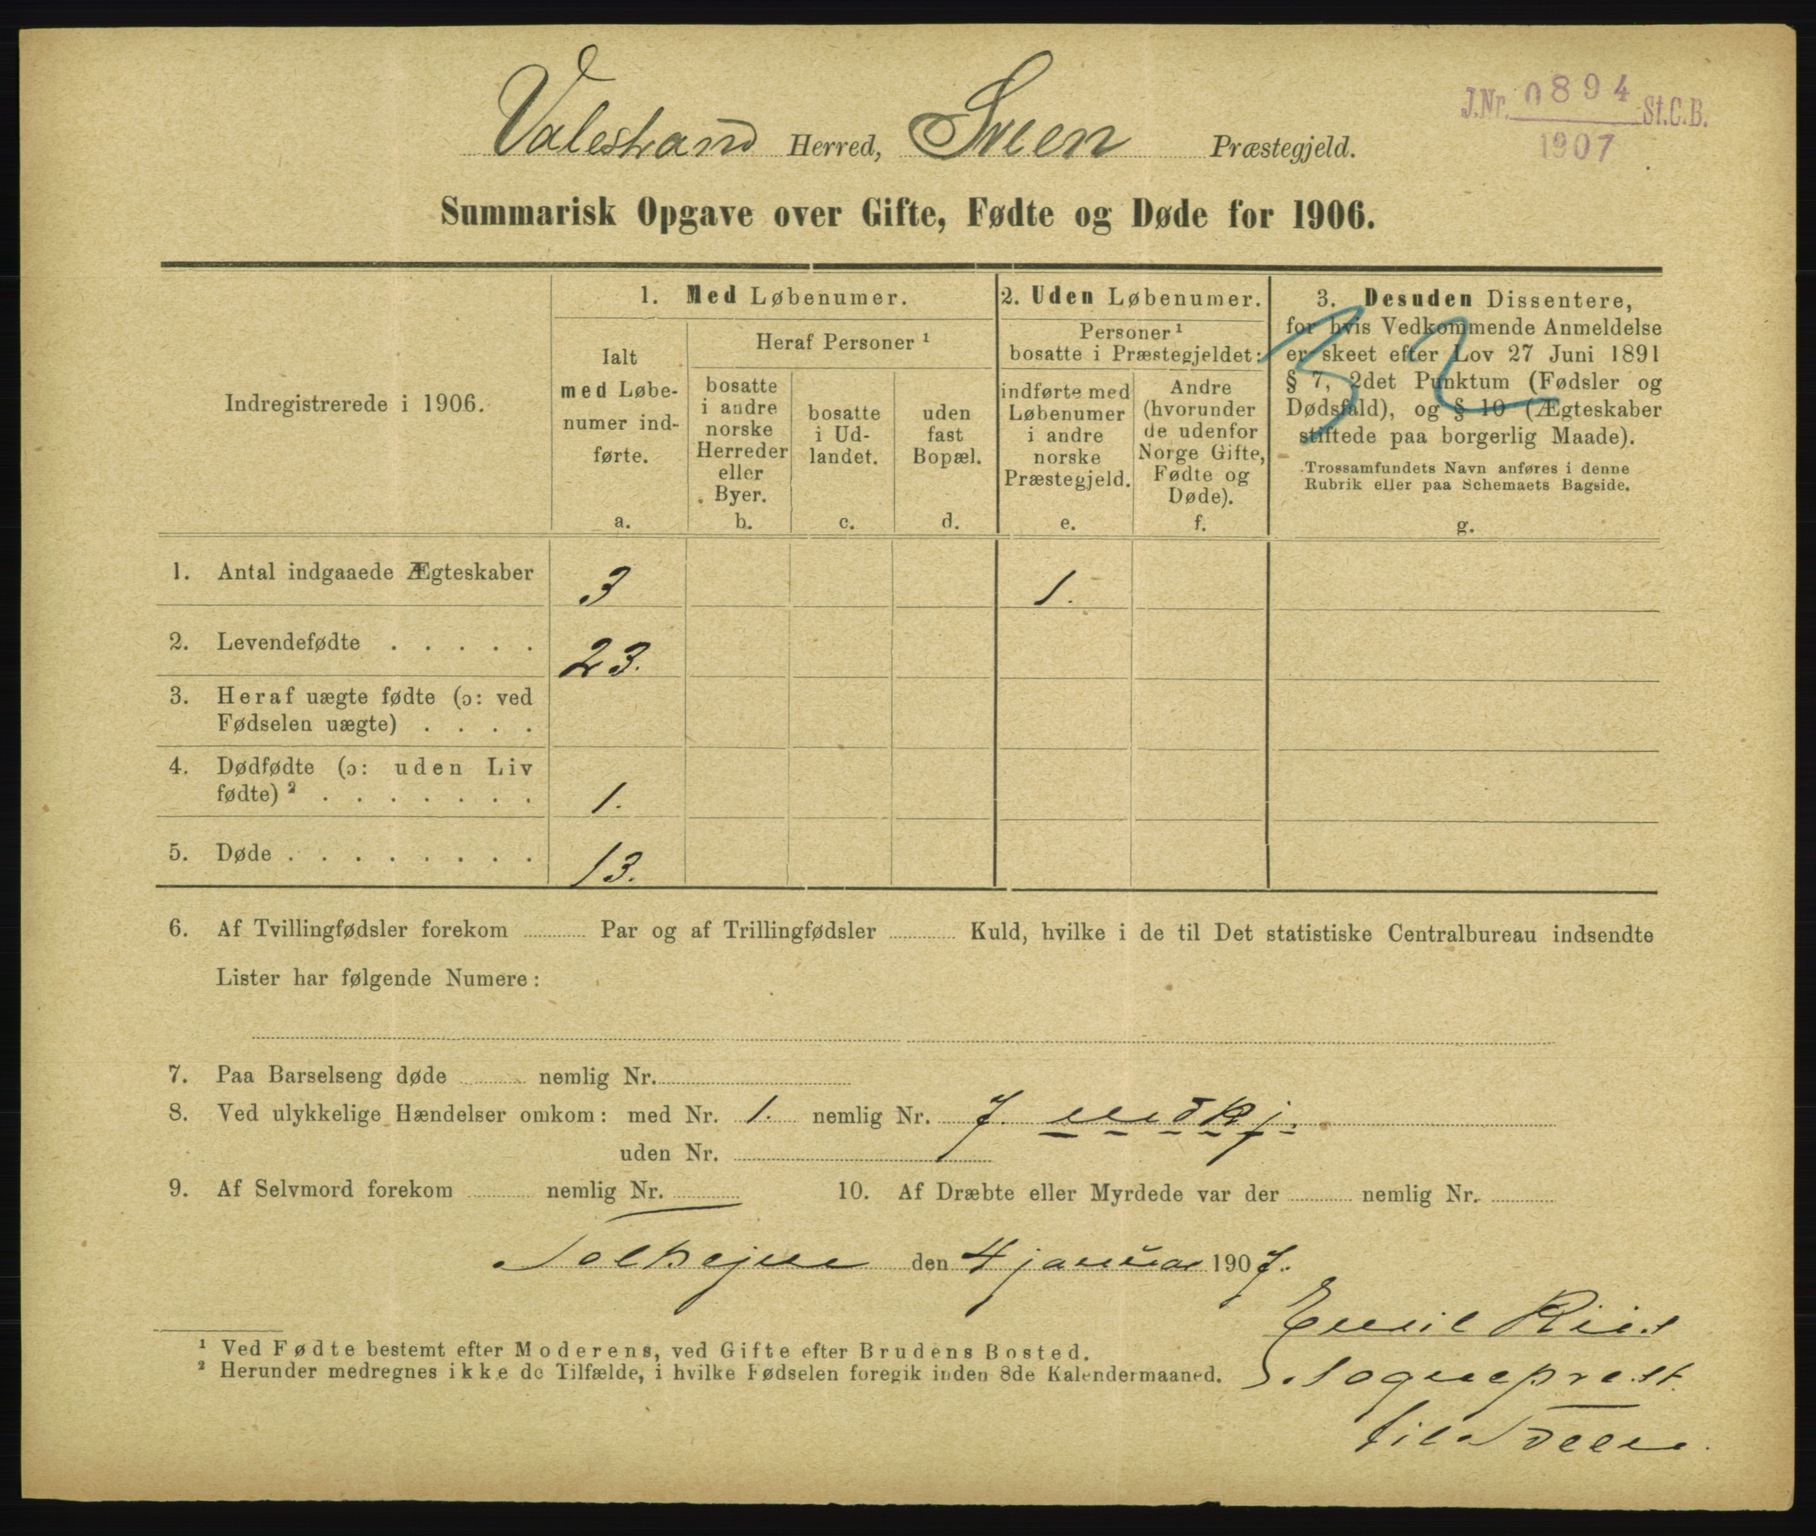 J.Nr. 0894 St.C.B.
1907
Valestrand Herred, Sveen Præstegjeld.
Summarisk Opgave over Gifte, Fødte og Døde for 1906.
Indregistrerede i 1906.
1. Med Løbenumer.
Ialt
med Løbe-
numer ind-
førte.
a.
Heraf Personer ¹
bosatte
i andre
norske
Herreder
eller
Byer.
b.
bosatte
i Ud-
landet.
c.
uden
fast
Bopæl.
d.
2. Uden Løbenumer.
Personer ¹
bosatte i Præstegjeldet:
indførte med
Løbenumer
i andre
norske
Præstegjeld.
e.
Andre
(hvorunder
de udenfor
Norge Gifte,
Fødte og
Døde).
f.
3. Desuden Dissentere,
for hvis Vedkommende Anmeldelse
er skeet efter Lov 27 Juni 1891
§ 7, 2det Punktum (Fødsler og
Dødsfald), og § 10 (Ægteskaber
stiftede paa borgerlig Maade).
Trossamfundets Navn anføres i denne
Rubrik eller paa Schemaets Bagside.
g.
32
1. Antal indgaaede Ægteskaber 3 1.
2. Levendefødte . . . . . 23.
3. Heraf uægte fødte (ɔ: ved
Fødselen uægte) . . . .
4. Dødfødte (ɔ: uden Liv
fødte) ² . . . . . . . 1.
5. Døde . . . . . . . . 13.
6. Af Tvillingfødsler forekom Par og af Trillingfødsler Kuld, hvilke i de til Det statistiske Centralbureau indsendte
Lister har følgende Numere:
7. Paa Barselseng døde nemlig Nr.
8. Ved ulykkelige Hændelser omkom: med Nr. 1. nemlig Nr. 7. mdkj.
uden Nr.
9. Af Selvmord forekom nemlig Nr. 10. Af Dræbte eller Myrdede var der nemlig Nr.
den 4 januar 1907.
Emil Riis
Sogneprest
til Sveen.
¹ Ved Fødte bestemt efter Moderens, ved Gifte efter Brudens Bosted.
² Herunder medregnes ikke de Tilfælde, i hvilke Fødselen foregik inden 8de Kalendermaaned.